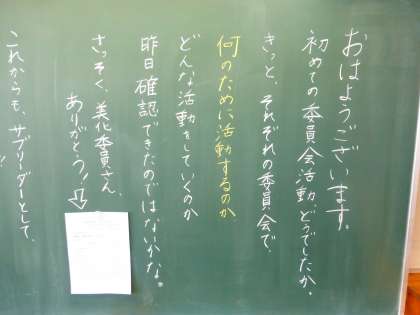 おはようございます。
初めての委員会活動、どうでしたか。
きっと、それぞれの委員会で、
何のために活動するのか
どんな活動をしていくのか
昨日確認できたのではないかな。
さっそく、美化委員さん、
ありがとう！
これからも、サブリーダーとして、